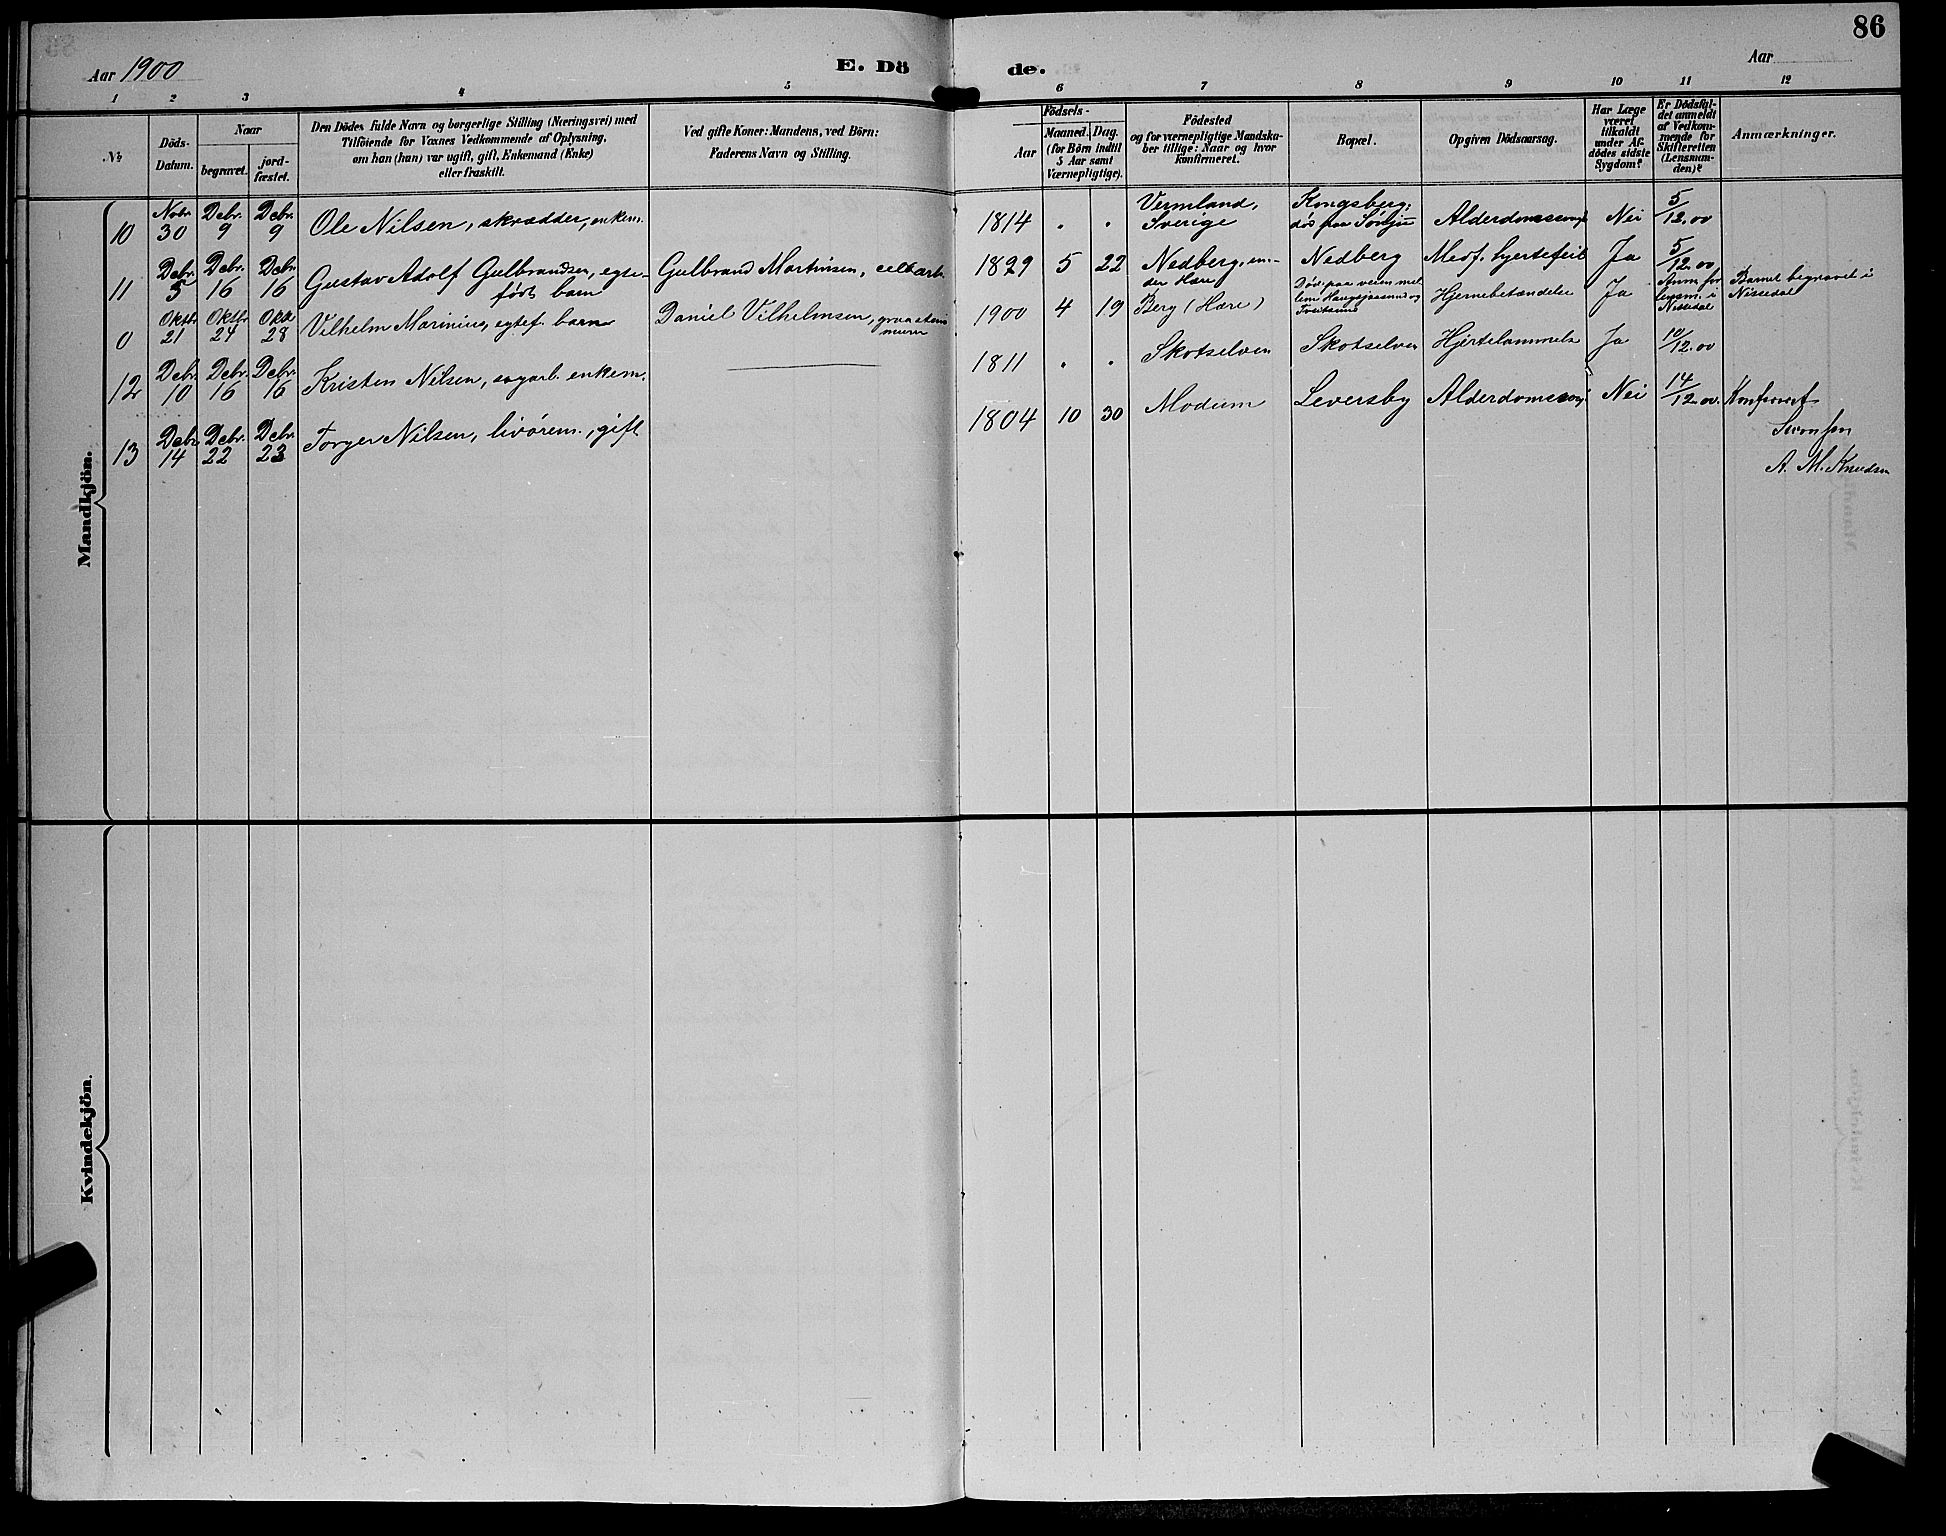 86
Aar 1900
E. Dö
de.
Aar
1 2 3 4 5 6 7 8 9 10 11 12
No
Döds-
Datum.
Naar
begravet.
jord-
fæstet.
Den Dödes fulde Navn og borgerlige Stilling (Næringsvei) med
Tilföiende for Voxnes Vedkommende af Oplysning,
om han (hun) var ugift, gift, Enkemand (Enke)
eller fraskilt.
Ved gifte Koner: Mandens, ved Börn:
Faderens Navn og Stilling.
Födsels-
Aar
Maaned. Dag.
(for Börn indtil
5 Aar samt
Værnepligtige).
Födested
og for værnepligtige Mandska-
ber tillige: Naar og hvor
konfirmeret.
Bopæl.
Opgiven Dödsaarsag.
Har Læge
været
tilkaldt
under Af-
dödes sidste
Sygdom?
Er Dödsfal-
det anmeldt
af Vedkom-
mende for
Skifteretten
(Lensman-
den)?
Anmærkninger.
Mandkjön.
10 Novbr. 30 Debr. 9 Debr. 9 Ole Nilsen, skrædder, enkem. 1814 " " Vermland, Sverige Kongsberg; død paa Alderdomssvagh. Nei 5/12.00
11 Debr. 5 Debr. 16 Debr. 16 Gustav Adolf Gulbrandsen, egte-
født barn Gulbrand Martinsen, cellarb. 1899 5 22 Nedberg, un-
der Hære Nedberg Medf. hjertefeil Ja 5/12.00
0 Oktbr. 21 Oktbr. 24 Oktbr. 28 Vilhelm Marinius, egtef. barn Daniel Vilhelmsen, graastens
murer 1900 4 19 Berg (Hære) Døde paa veien mel
lem Haugsjaasund og
Tveitsund Hjernebetændelse Ja Anm. for
lensm. i
Nissedal Barnet begravet i
Nissedal
12 Debr. 10 Debr. 16 Debr. 16 Kristen Nilsen, sagarb. enkem. 1811 " " Skotselven Skotselven Hjertelammelse Ja 10/12.00
13 Debr. 14 Debr. 22 Debr. 23 Torger Nilsen, livørem., gift 1804 10 30 Modum Leversby Alderdomssvagh. Nei 14/12.00. Konfereret
A. M. Knudsen
Kvindekjön.